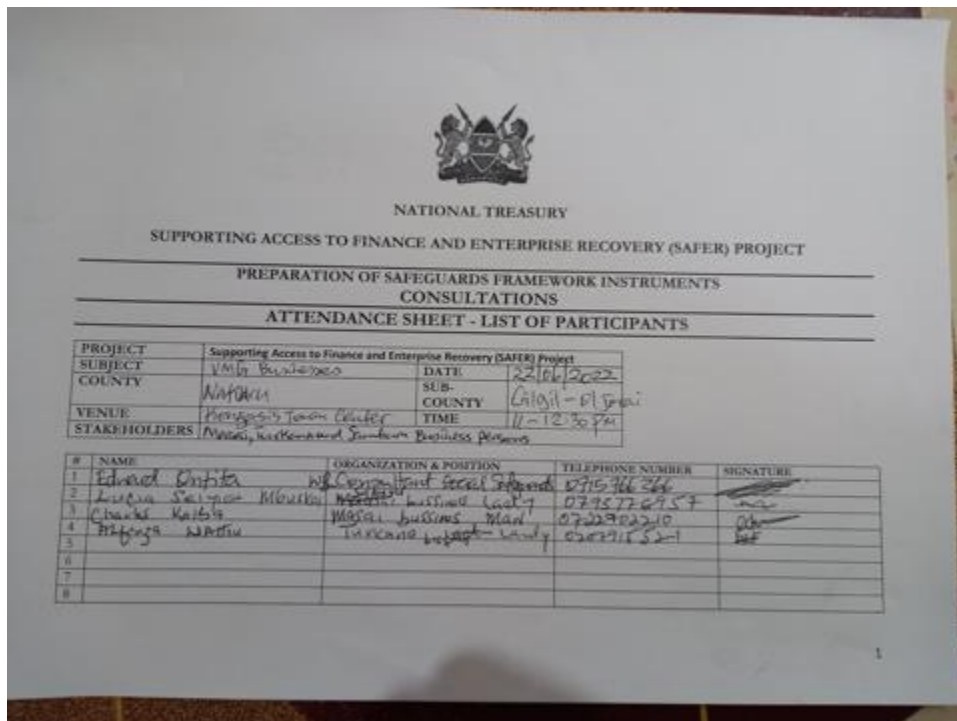 NATIONAL TREASURY
SUPPORTING ACCESS TO FINANCE AND ENTERPRISE RECOVERY (SAFER) PROJECT
PREPARATION OF SAFEGUARDS FRAMEWORK INSTRUMENTS
CONSULTATIONS
ATTENDANCE SHEET - LIST OF PARTICIPANTS
PROJECT Supporting Access to Finance and Enterprise Recovery (SAFER) Project
SUBJECT VMG Businesses DATE 22/06/2022
COUNTY Nakuru SUB-COUNTY Gilgil -
VENUE Town Center TIME 11-12:30 PM
STAKEHOLDERS Masai, and Business persons
# NAME ORGANIZATION & POSITION TELEPHONE NUMBER SIGNATURE
1 Edward Ontita WB Consultant Social Safeguards 0715766266
2 Lucia bussines Lady
3 Charles Masai bussines Man 0722902210
4 Lady
5
6
7
8
1